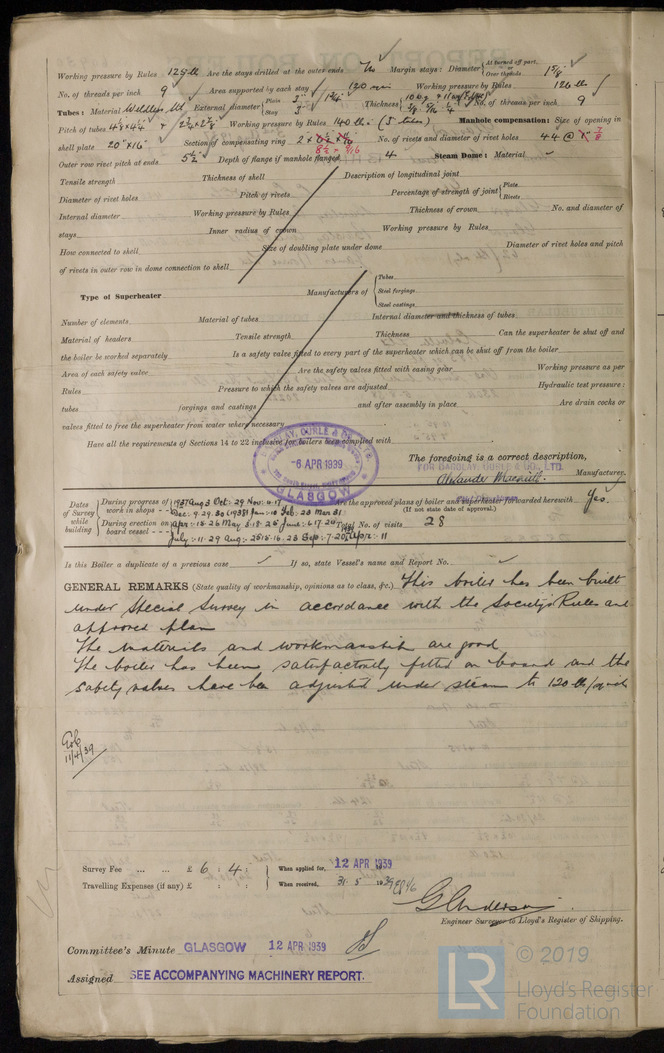 Working pressure by Rules 125 lb Are the stays drilled at the outer ends No Margin stays: Diameter { At turned off part, or Over threads 1 5/8"
No. of threads per inch 9 Area supported by each stay 120 Working pressure by Rules 126 lb
Tubes: Material External diameter { Plain 3" Stay 3" Thickness { No. of threads per inch 9
Pitch of tubes Working pressure by Rules 140 lb. Manhole compensation: Size of opening in
shell plate 20" x 16" Section of compensating ring No. of rivets and diameter of rivet holes 44 @ 7/8
Outer row rivet pitch at ends 5 1/2" Depth of flange if manhole flanged 4 Steam Dome: Material
Tensile strength Thickness of shell Description of longitudinal joint
Diameter of rivet holes Pitch of rivets Percentage of strength of joint { Plate Rivets
Internal diameter Working pressure by Rules Thickness of crown No. and diameter of
stays Inner radius of crown Working pressure by Rules
How connected to shell Size of doubling plate under dome Diameter of rivet holes and pitch
of rivets in outer row in dome connection to shell
Type of Superheater Manufacturers of { Tubes Steel forgings Steel castings
Number of elements Material of tubes Internal diameter and thickness of tubes
Material of headers Tensile strength Thickness Can the superheater be shut off and
the boiler be worked separately Is a safety valve fitted to every part of the superheater which can be shut off from the boiler
Area of each safety valve Are the safety valves fitted with easing gear Working pressure as per
Rules Pressure to which the safety valves are adjusted Hydraulic test pressure:
tubes forgings and castings and after assembly in place Are drain cocks or
valves fitted to free the superheater from water where necessary
Have all the requirements of Sections 14 to 22 inclusive for boilers been complied with
BARCLAY, CURLE & CO. LTD.
-6 APR 1939
GLASGOW
The foregoing is a correct description,
FOR BARCLAY, CURLE & CO., LTD.
Manufacturer.
Dates of Survey while building { During progress of work in shops - - 1937 Aug 3 Oct: 29 Nov: 9.17 Dec. 9.29.30 1938 Jan. 10 Feb: 23 Mar 31
During erection on board vessel - - - Apr: 12.26 May 3.18.25 June: 6.7.24 July: 11.29 Aug: 25 Sep: 7.20 1939 Apr: 11
Are the approved plans of boiler and superheater forwarded herewith Yes.
(If not state date of approval.)
Total No. of visits 28
Is this Boiler a duplicate of a previous case If so, state Vessel's name and Report No.
GENERAL REMARKS (State quality of workmanship, opinions as to class, &c.) This boiler has been built
under Special Survey in accordance with the Society's Rules and
approved plan
The materials and workmanship are good
The boiler has been satisfactorily fitted on board and the
safety valves have been adjusted under steam to 120 lb/
11/4/39
Survey Fee ... ... £ 6 : 4 : When applied for, 12 APR 1939
Travelling Expenses (if any) £ : : When received, 31.5 1939
G Anderson
Engineer Surveyor to Lloyd's Register of Shipping.
Committee's Minute GLASGOW 12 APR 1939
Assigned SEE ACCOMPANYING MACHINERY REPORT.
LR
© 2019
Lloyd's Register
Foundation